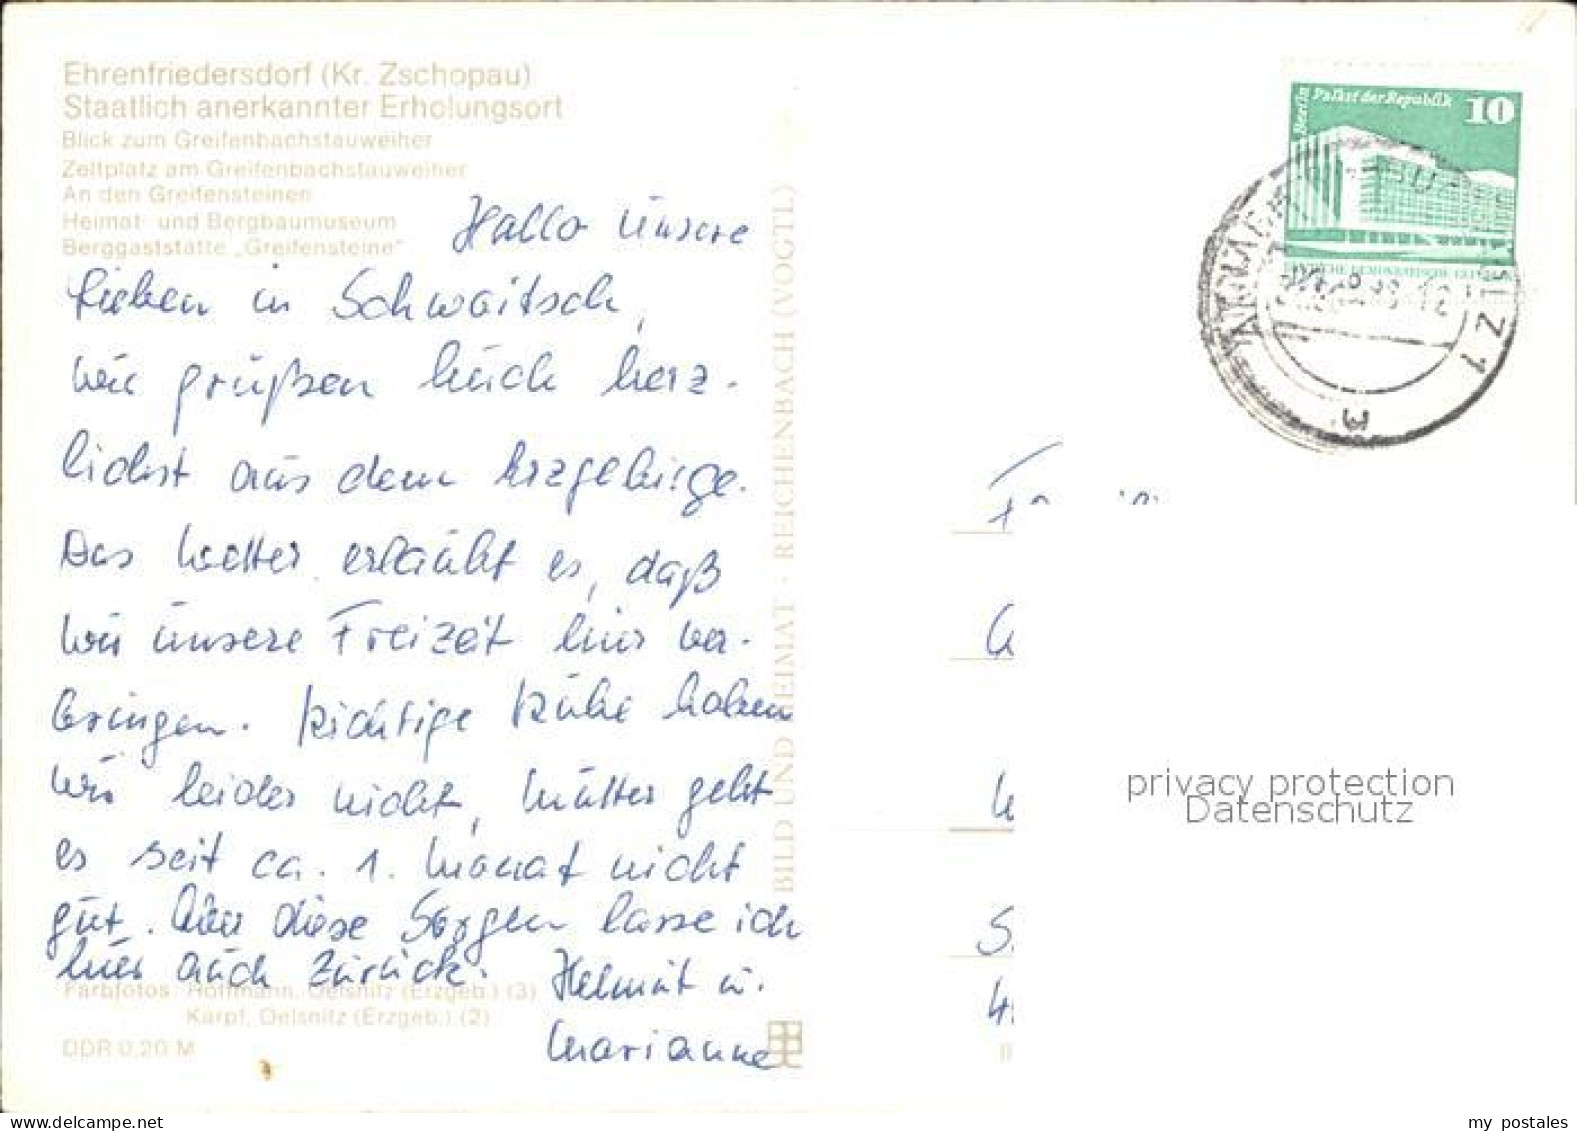 Ehrenfriedersdorf (Kr. Zschopau)
Staatlich anerkannter Erholungsort
Blick zum Greifenbachstauweiher
Zeltplatz am Greifenbachstauweiher
An den Greifensteinen
Heimat- und Bergbaumuseum
Berggaststätte „Greifensteine"
Hallo Unsere
lieben in Schwaitsch,
wir grüßen Euch herz-
lichst aus dem Erzgebirge.
Das Wetter erlaubt es, daß
wir unsere Freizeit hier ver-
bringen. Richtige Ruhe haben
wir leider nicht, Mutter geht
es seit ca. 1. Monat nicht
gut. diese Sorgen lasse ich
hier auch zurück.
Helmut u.
Marianne
Farbfotos: Hoffmann, Oelsnitz (Erzgeb.) (3)
Karpf, Oelsnitz (Erzgeb.) (2)
DDR 0,20 M
BILD UND HEIMAT · REICHENBACH (VOGTL)
Berlin Palast der Republik
10
privacy protection
Datenschutz
my postales